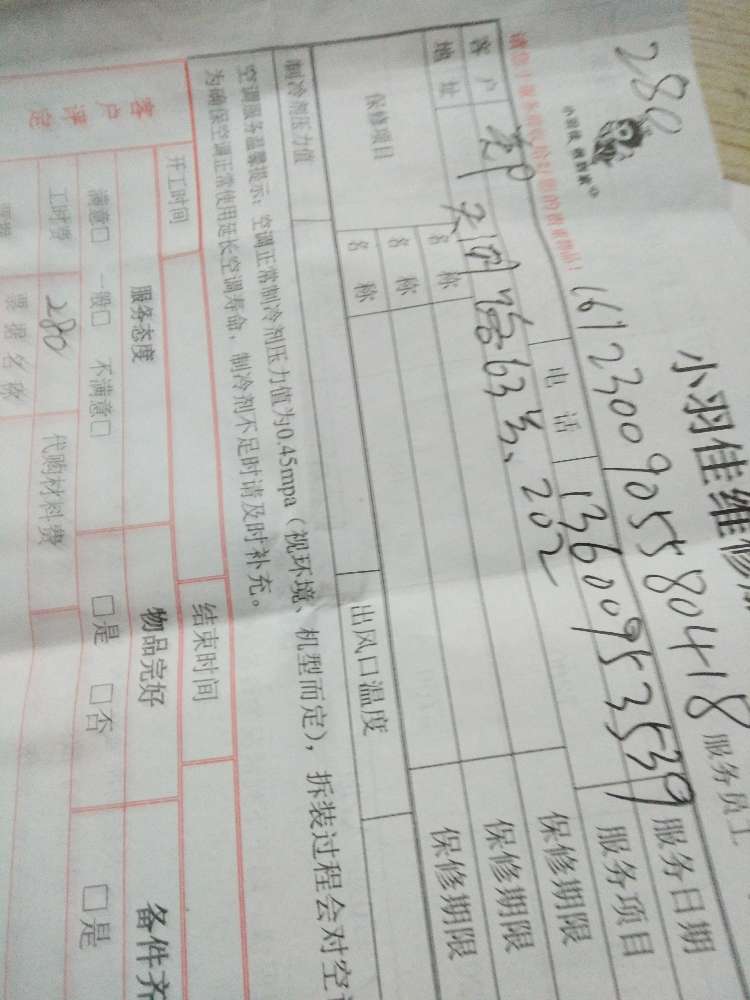 280
小羽佳维修
1612300905580418
服务员工
客户 郑 电话 13600953539 服务日期
地址 63号、202 服务项目
保修项目
名称 保修期限
名称 保修期限
名称 保修期限
制冷剂压力值 出风口温度
空调服务温馨提示：空调正常制冷剂压力值为0.45mpa（视环境、机型而定），拆装过程会对空
为确保空调正常使用延长空调寿命，制冷剂不足时请及时补充。
开工时间 结束时间
客户评定
服务态度 物品完好 备件齐
满意□ 一般□ 不满意□ □是 □否 □是
工时费 280 代购材料费
票据名称